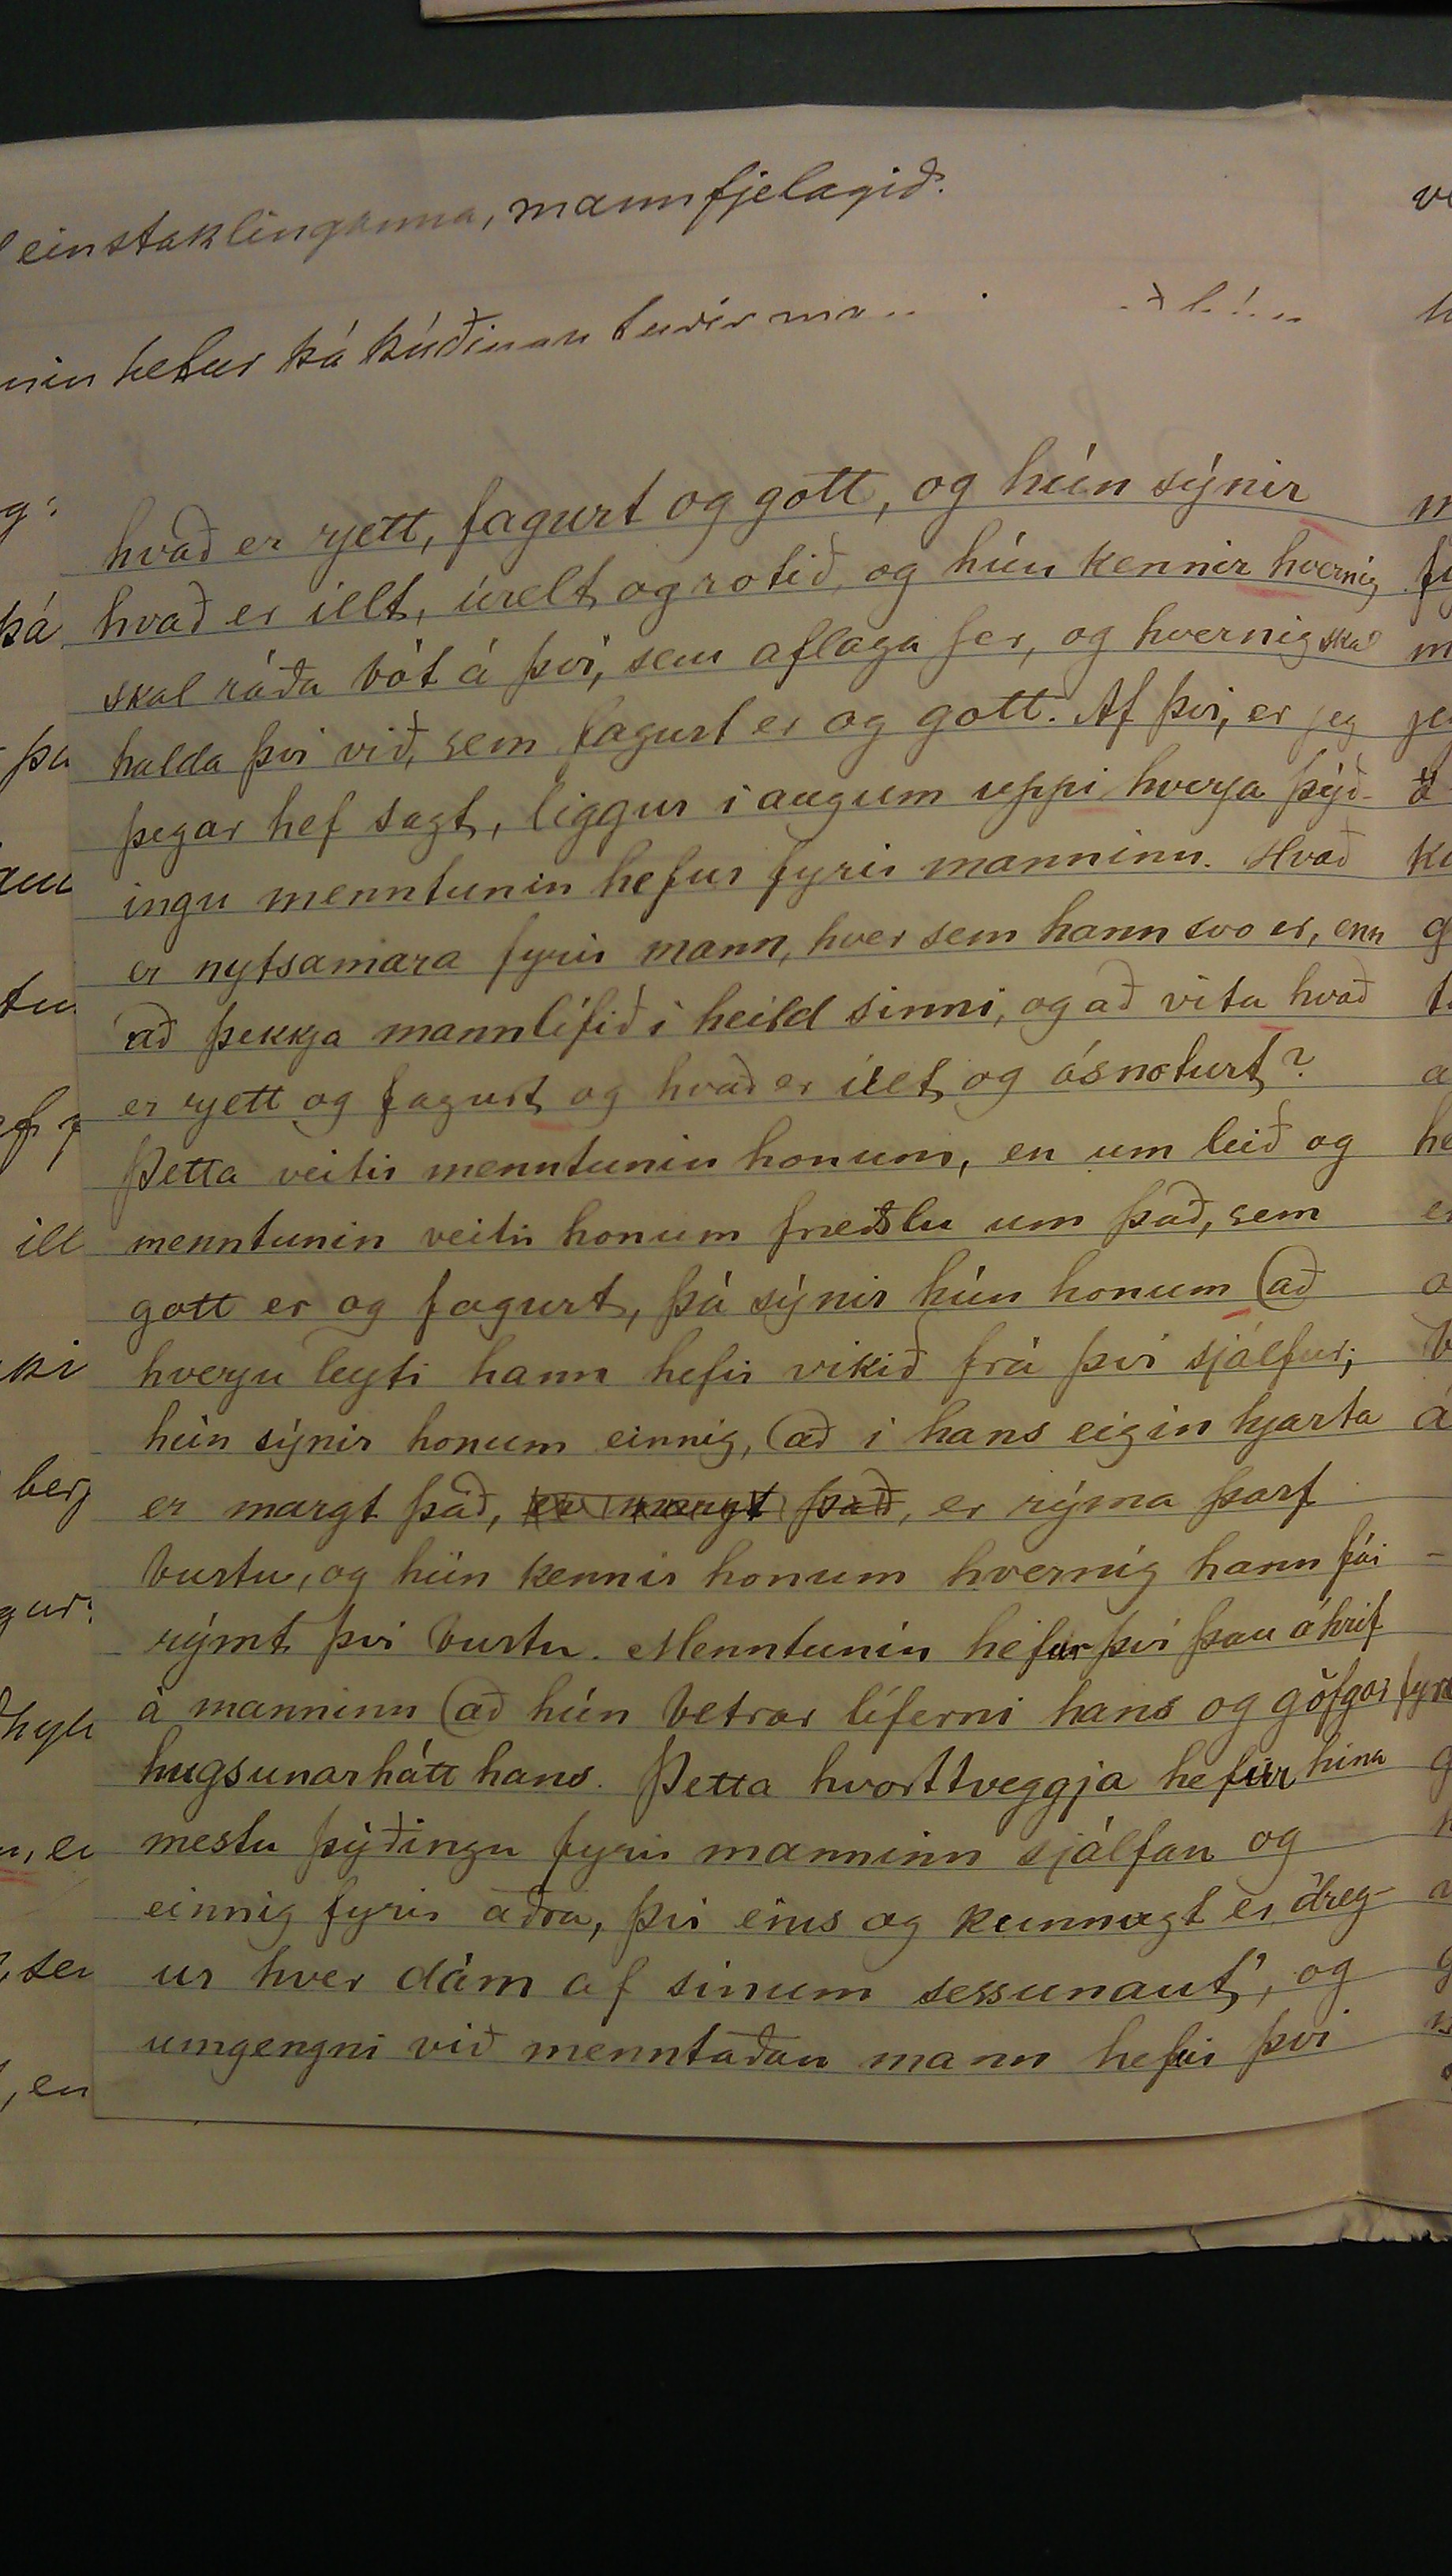 einstaklinganna, mannfjelagið.
hefur þá þýðingu
hvað er rjett, fagurt og gott, og hún sýnir
hvað er illt, úrelt og rotið, og hún kennir hvernig
skal ráða bót á því, sem aflaga fer, og hvernig skal
halda því við, sem fagurt er og gott. Af því, er jeg
þegar hef sagt, liggur í augum uppi hverja þýð-
ingu menntunin hefur fyrir manninn. Hvað
er nytsamara fyrir mann, hver sem hann svo er, enn
að þekkja mannlífið í heild sinni, og að vita hvað
er rjett og fagurt og hvað er illt og ósnoturt?
Þetta veitir menntunin honum, en um leið og
menntunin veitir honum fræðslu um það, sem
gott er og fagurt, þá sýnir hún honum að
hverju leyti hann hefir vikið frá því sjálfur;
hún sýnir honum einnig, að í hans eigin hjarta
er margt það, er margt það, er rýma þarf
burtu, og hún kennir honum hvernig hann fái
rýmt því burtu. Menntunin hefur því þau áhrif
á manninn að hún betrar líferni hans og göfgar
hugsunarhátt hans. Þetta hvorttveggja hefur hina
mestu þýðingu fyrir manninn sjálfan og
einnig fyrir aðra, því eins og kunnugt er „dreg-
ur hver dám af sínum sessunaut“, og
umgengni við menntaðan mann hefur því